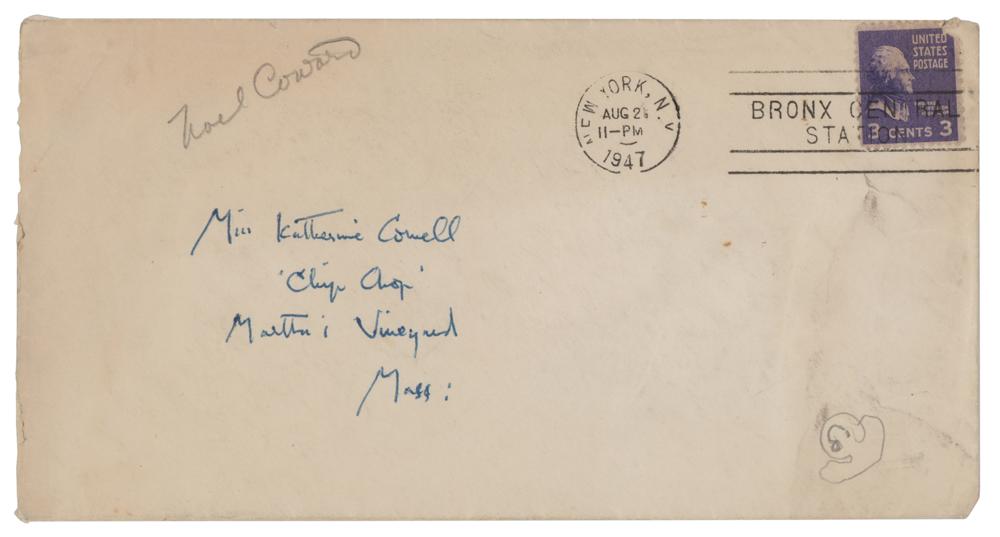 Noel Coward
NEW YORK, N.Y.
AUG 2
11-PM
1947
BRONX CENTRAL
STATION
UNITED
STATES
POSTAGE
3 CENTS 3
Miss Katherine Cornell
'Chip Chop'
Martha's Vineyard
Mass: